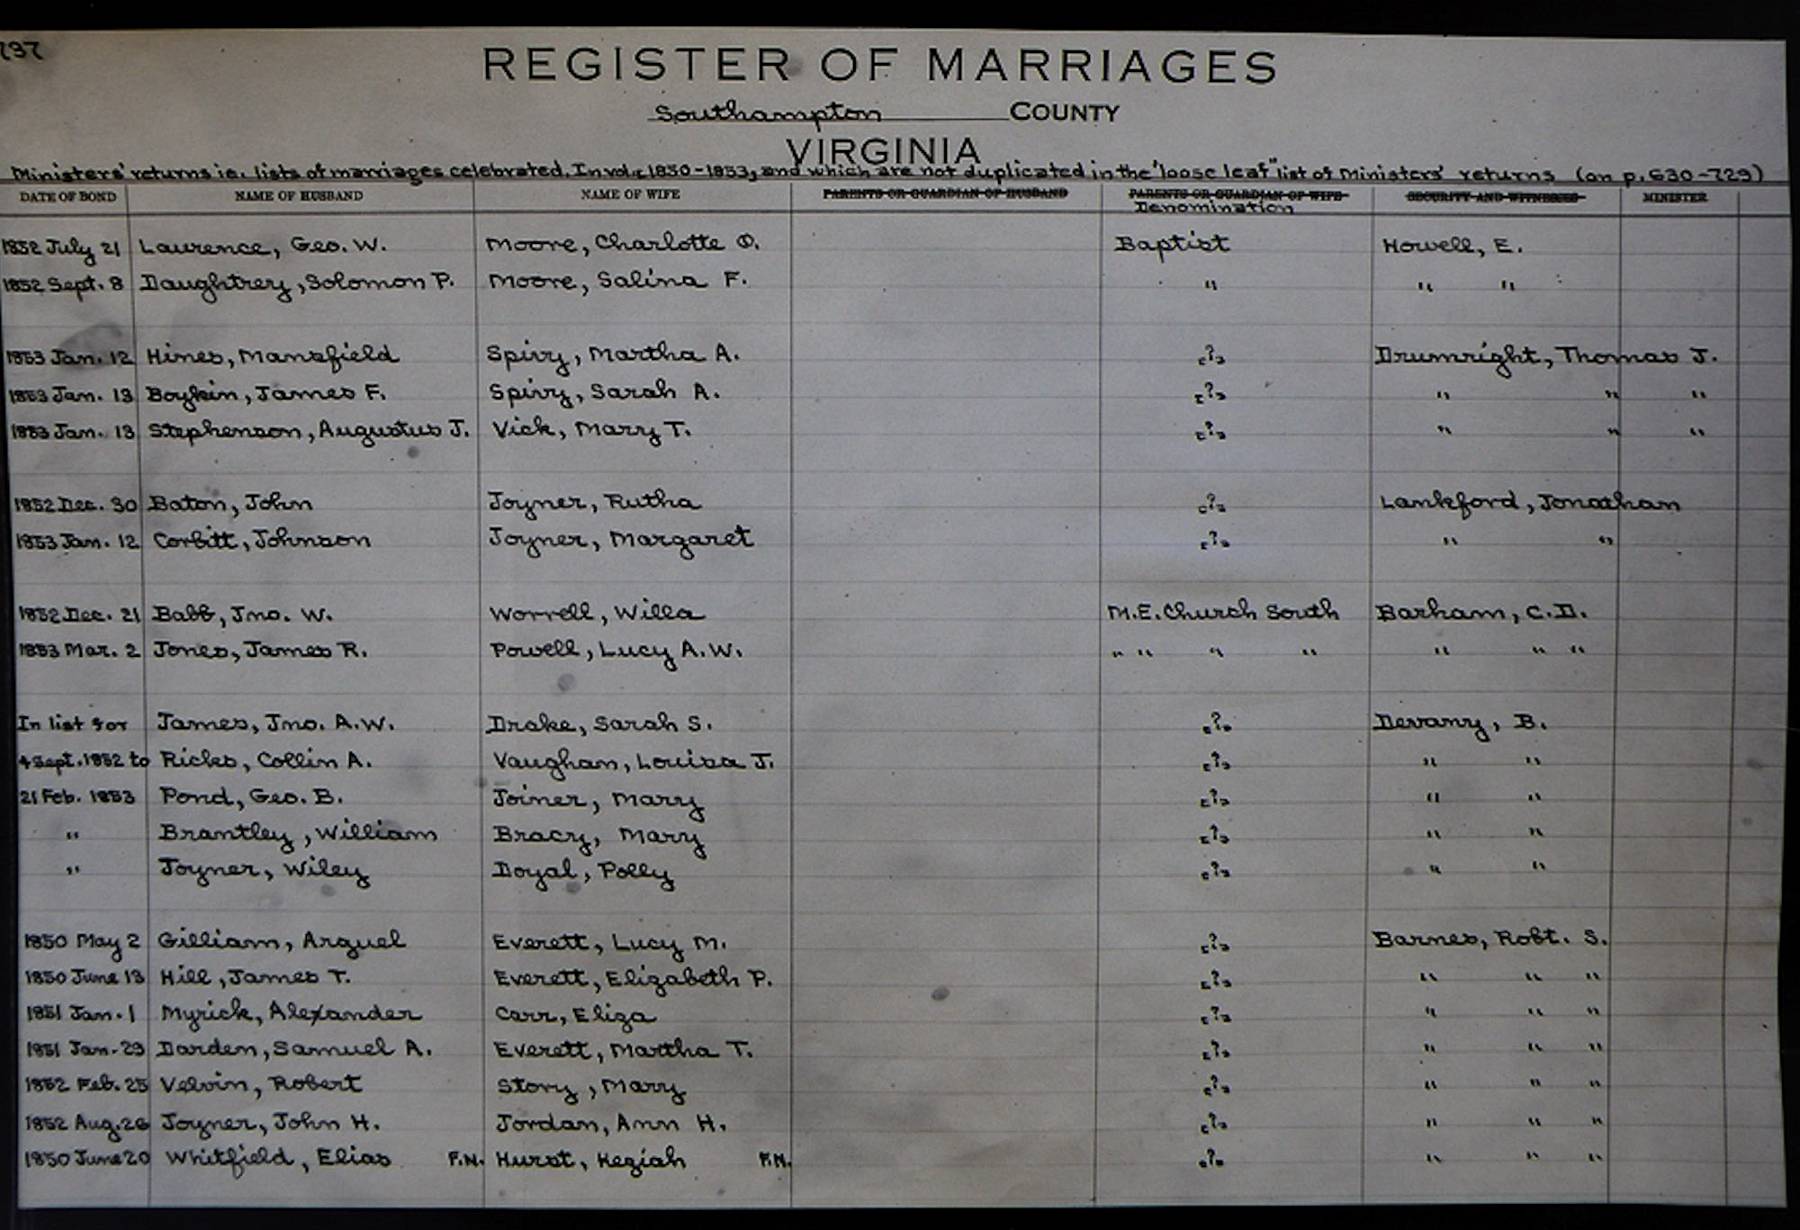 737
REGISTER OF MARRIAGES
Southampton COUNTY
VIRGINIA
Ministers' returns ie. lists of marriages celebrated, In vol. 1850-1853, and which are not duplicated in the "loose leaf" list of Ministers' returns (on p. 630-729)
DATE OF BOND NAME OF HUSBAND NAME OF WIFE PARENTS OR GUARDIAN OF HUSBAND PARENTS OR GUARDIAN OF WIFE SECURITY AND WITNESSES MINISTER
Denomination
1852 July 21 Laurence, Geo. W. Moore, Charlotte O. Baptist Howell, E.
1852 Sept. 8 Daughtrey, Solomon P. Moore, Salina F. " " "
1853 Jan. 12 Hines, Mansfield Spivy, Martha A. [?] Drumright, Thomas J.
1853 Jan. 13 Boykin, James F. Spivy, Sarah A. [?] " " "
1853 Jan. 13 Stephenson, Augustus J. Vick, Mary T. [?] " " "
1852 Dec. 30 Baton, John Joyner, Rutha [?] Lankford, Jonathan
1853 Jan. 12 Corbitt, Johnson Joyner, Margaret [?] " "
1852 Dec. 21 Babb, Jno. W. Worrell, Willa M.E. Church South Barham, C.D.
1853 Mar. 2 Jones, James R. Powell, Lucy A.W. " " " " " " "
In list for James, Jno. A.W. Drake, Sarah S. [?] Devany, B.
4 Sept. 1852 to Ricks, Collin A. Vaughan, Louisa J. [?] " "
21 Feb. 1853 Pond, Geo. B. Joiner, Mary [?] " "
" Brantley, William Bracy, Mary [?] " "
" Joyner, Wiley Doyal, Polly [?] " "
1850 May 2 Gilliam, Arguel Everett, Lucy M. [?] Barnes, Robt. S.
1850 June 13 Hill, James T. Everett, Elizabeth P. [?] " " "
1851 Jan. 1 Myrick, Alexander Carr, Eliza [?] " " "
1851 Jan. 29 Darden, Samuel A. Everett, Martha T. [?] " " "
1852 Feb. 25 Velvin, Robert Story, Mary [?] " " "
1852 Aug. 26 Joyner, John H. Jordan, Ann H. [?] " " "
1850 June 20 Whitfield, Elias F.N. Hurst, Keziah F.N. [?] " " "